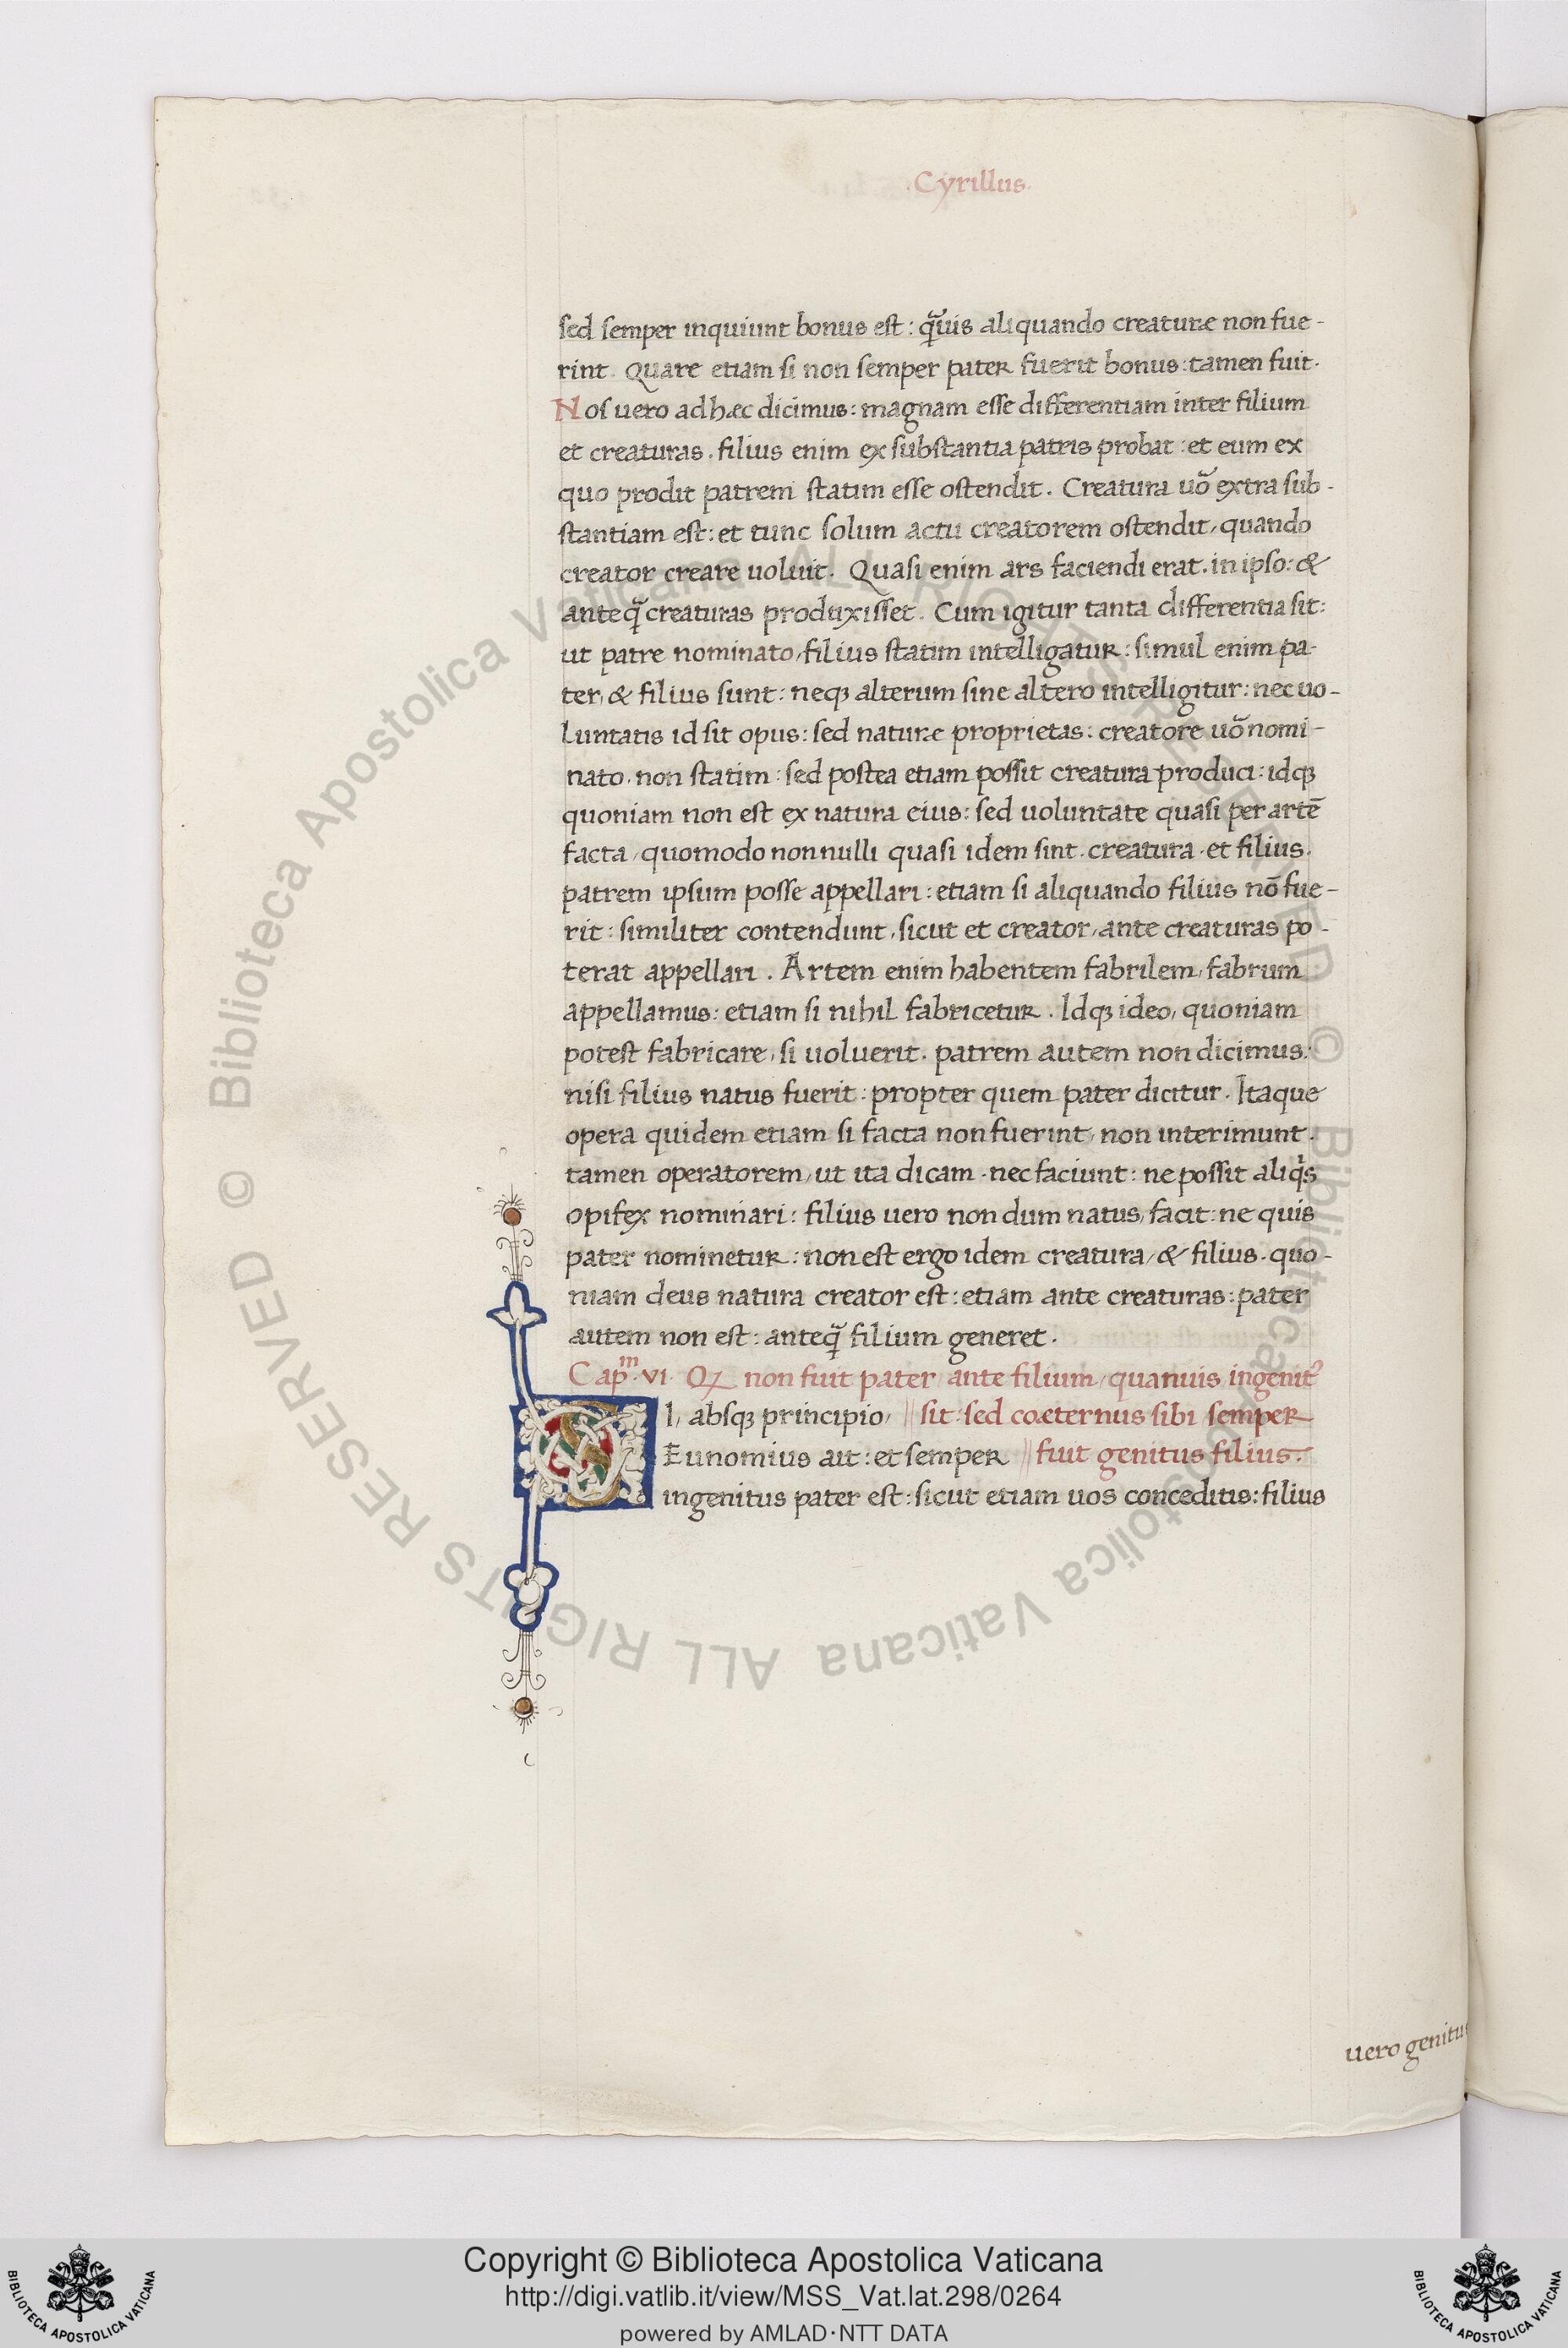 ·Cyrillus·
sed semper inquiunt bonus est: q̃uis aliquando creaturæ non fue-
rint. Quare etiam si non semper pater fuerit bonus: tamen fuit.
Nos uero ad hæc dicimus: magnam esse differentiam inter filium
et creaturas. filius enim ex substantia patris probat: et eum ex
quo prodit patrem statim esse ostendit. Creatura uõ extra sub-
stantiam est: et tunc solum actu creatorem ostendit, quando
creator creare uoluit. Quasi enim ars faciendi erat. in ipso: &
anteq̃ creaturas produxisset. Cum igitur tanta differentia sit:
ut patre nominato, filius statim intelligatur: simul enim pa-
ter, & filius sunt: neqꝫ alterum sine altero intelligitur: nec uo-
luntatis id sit opus: sed naturæ proprietas: creatore uõ nomi-
nato, non statim: sed postea etiam possit creatura produci: idqꝫ
quoniam non est ex natura eius: sed uoluntate quasi per artē
facta, quomodo nonnulli quasi idem sint. creatura. et filius.
patrem ipsum posse appellari: etiam si aliquando filius nō fue-
rit: similiter contendunt, sicut et creator, ante creaturas po-
terat appellari. Artem enim habentem fabrilem, fabrum
appellamus: etiam si nihil fabricetur. Idqꝫ ideo, quoniam
potest fabricare, si uoluerit. patrem autem non dicimus:
nisi filius natus fuerit: propter quem pater dicitur. Itaque
opera quidem etiam si facta non fuerint, non interimunt.
tamen operatorem, ut ita dicam. nec faciunt: ne possit aliq̇s
opifex nominari: filius uero non dum natus, facit: ne quis
pater nominetur: non est ergo idem creatura, & filius. quo-
niam deus natura creator est: etiam ante creaturas: pater
autem non est: anteq̃ filium generet.
Capᵐ. vi. Qꝫ non fuit pater ante filium, quanuis ingenitꝰ
SI, absqꝫ principio, sit: sed coæternus sibi semper
Eunomius ait: et semper fuit genitus filius.
ingenitus pater est: sicut etiam uos conceditis: filius
uero genitus
© Biblioteca Apostolica Vaticana ALL RIGHTS RESERVED © Biblioteca Apostolica Vaticana ALL RIGHTS RESERVED
Copyright © Biblioteca Apostolica Vaticana
http://digi.vatlib.it/view/MSS_Vat.lat.298/0264
powered by AMLAD·NTT DATA
BIBLIOTECA APOSTOLICA VATICANA
BIBLIOTECA APOSTOLICA VATICANA